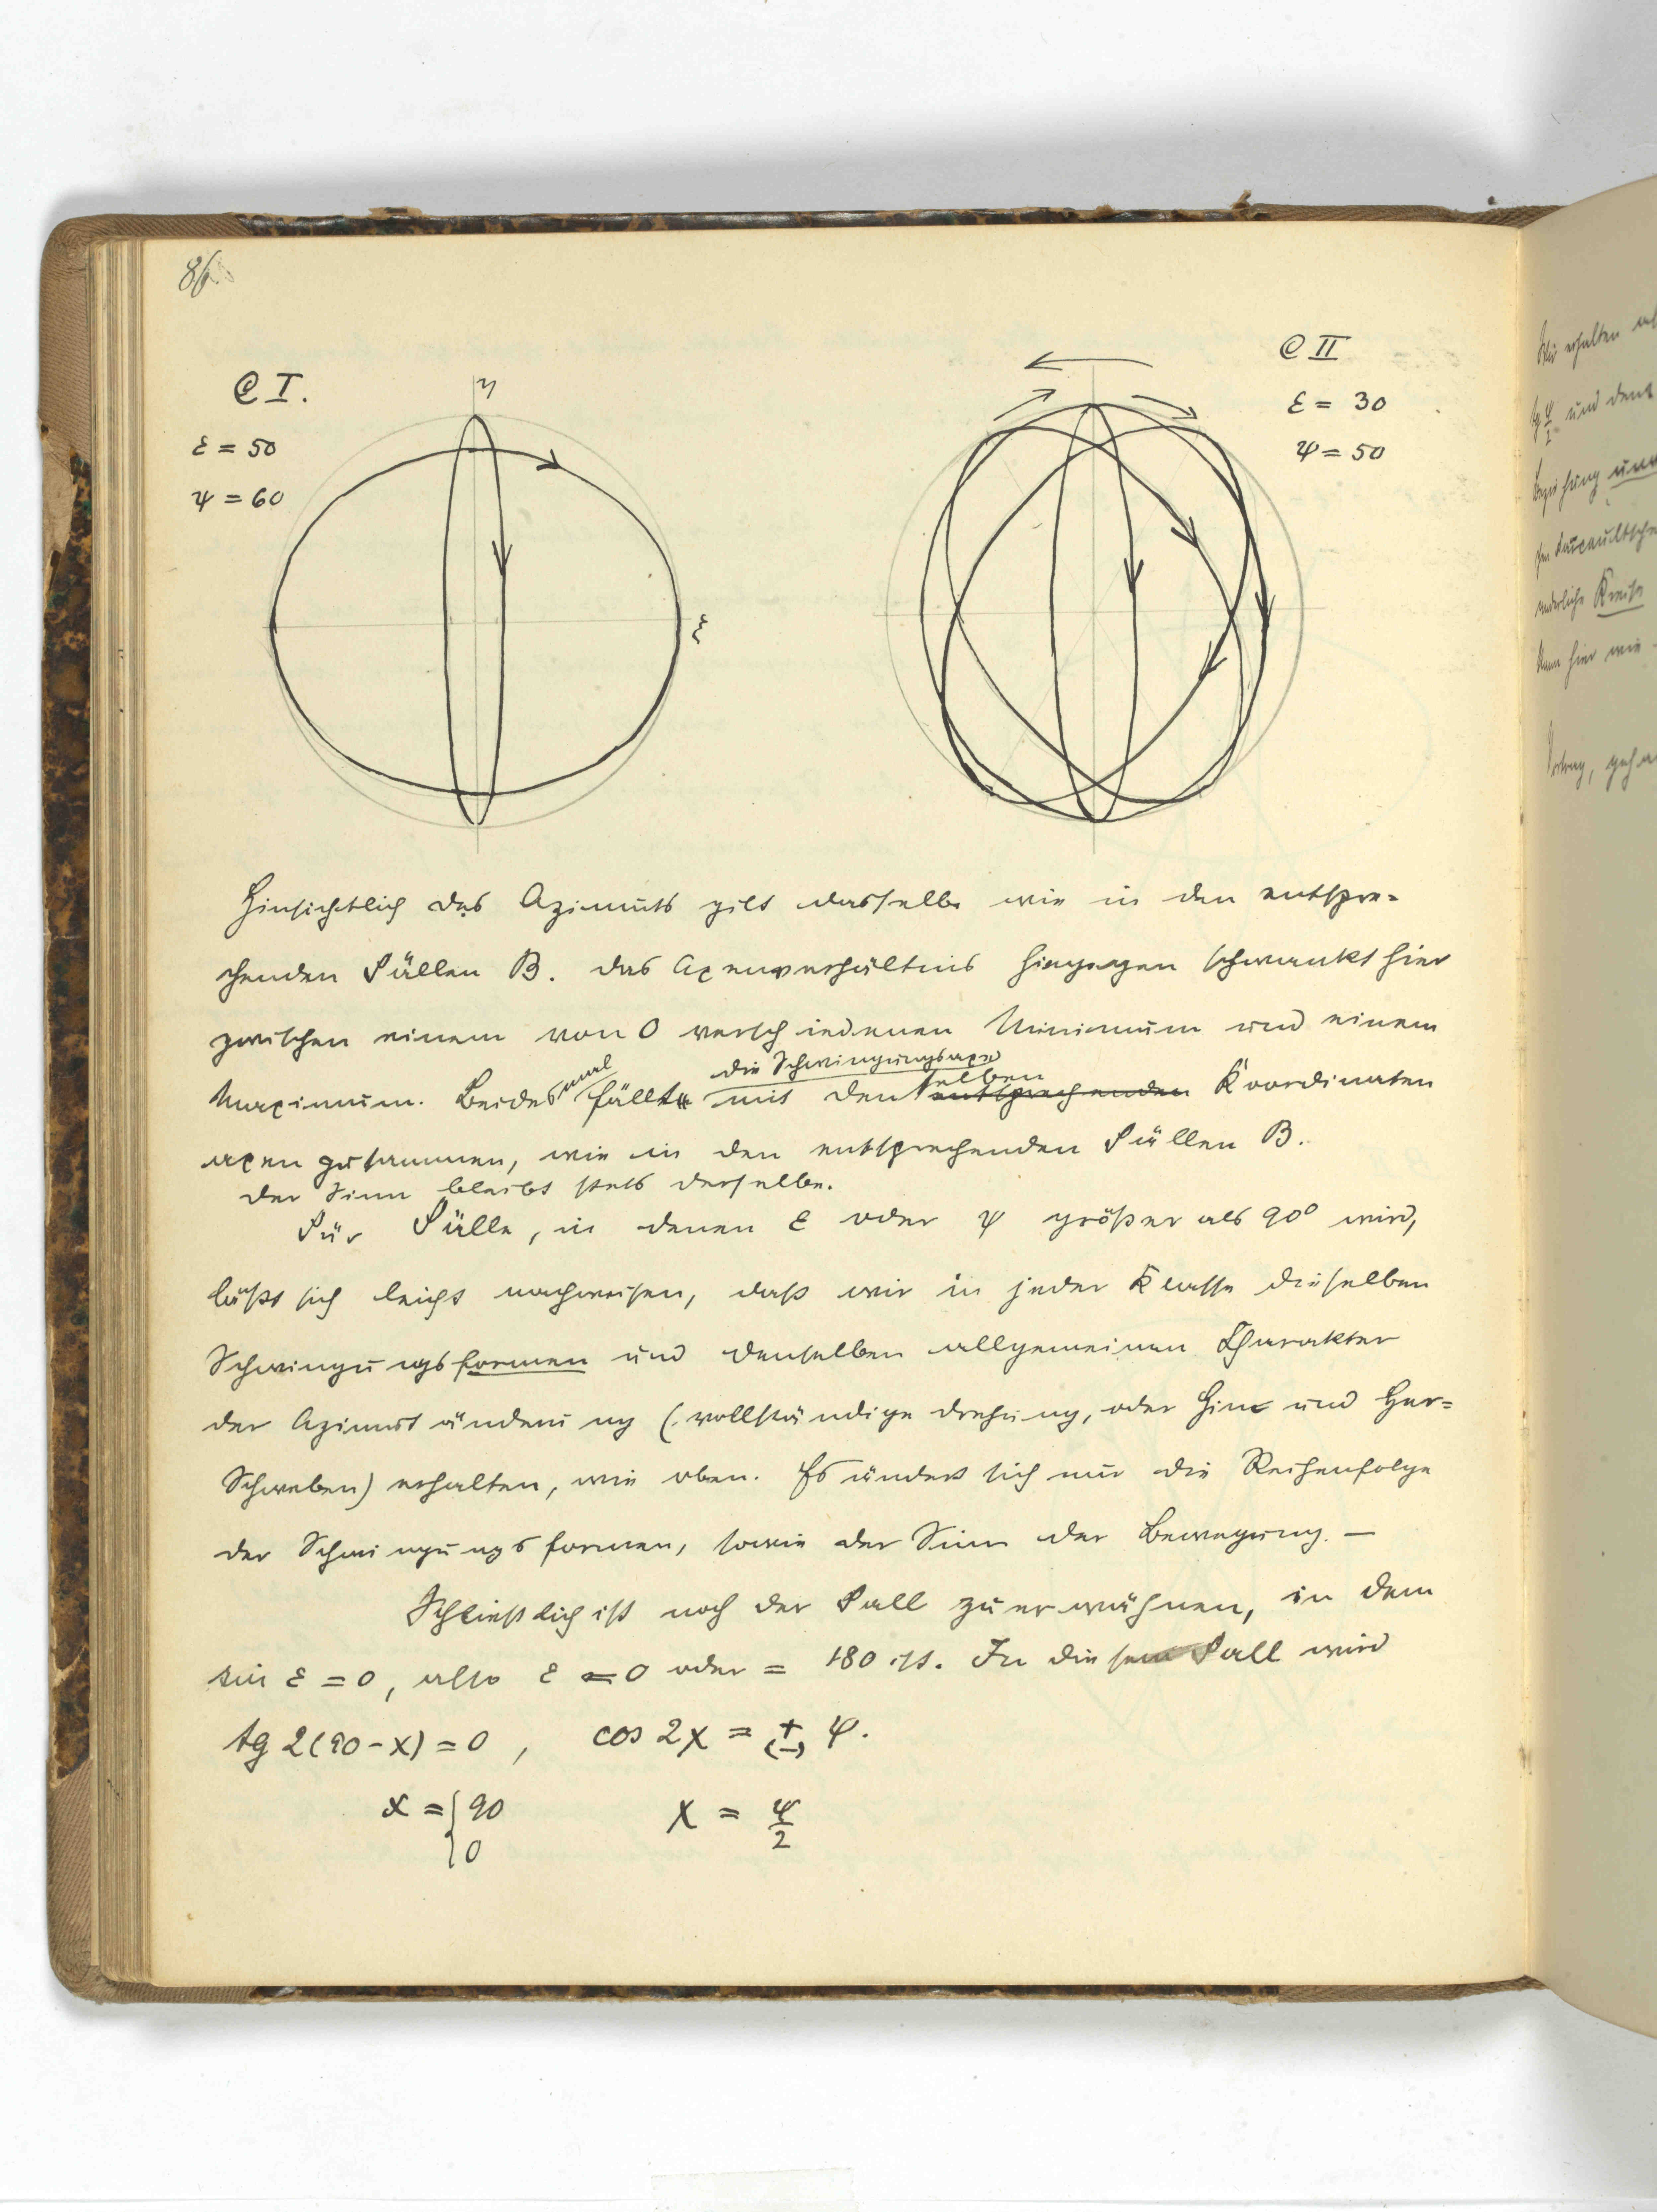 86
C I.
ε = 50
ψ = 60
η
ξ
C II
ε = 30
ψ = 50
Hinsichtlich des Azimuts gilt dasselbe wie in den entspre-
chenden Fällen B. Das Axenverhältnis hingegen schwankt hier
zwischen einem von 0 verschiedenen Minimum und einem
mal die Schwingungsaxe
selben
Maximum. Beides fällt mit den entsprechenden Koordinaten
axen zusammen, wie in den entsprechenden Fällen B.
Der Sinn bleibt stets derselbe.
Für Fälle, in denen ε oder ψ größer als 90° wird,
läßt sich leicht nachweisen, daß wir in jeder Klasse dieselben
Schwingungsformen und denselben allgemeinen Charakter
der Azimutänderung (vollständige Drehung, oder Hin und Her=
Schweben) erhalten, wie oben. Es ändert sich nur die Reihenfolge
der Schwingungsformen, sowie der Sinn der Bewegung. —
Schließlich ist noch der Fall zu erwähnen, in dem
sin ε = 0, also ε = 0 oder = 180 ist. In diesem Fall wird
tg 2(90 - x) = 0 , cos 2χ = ± ψ.
x = { 90 χ = ψ/2
0
Wir erhalten
tg ψ/2 und
Beziehung
Foucaultsche
Kreise
kann hier wie
Vortrag,